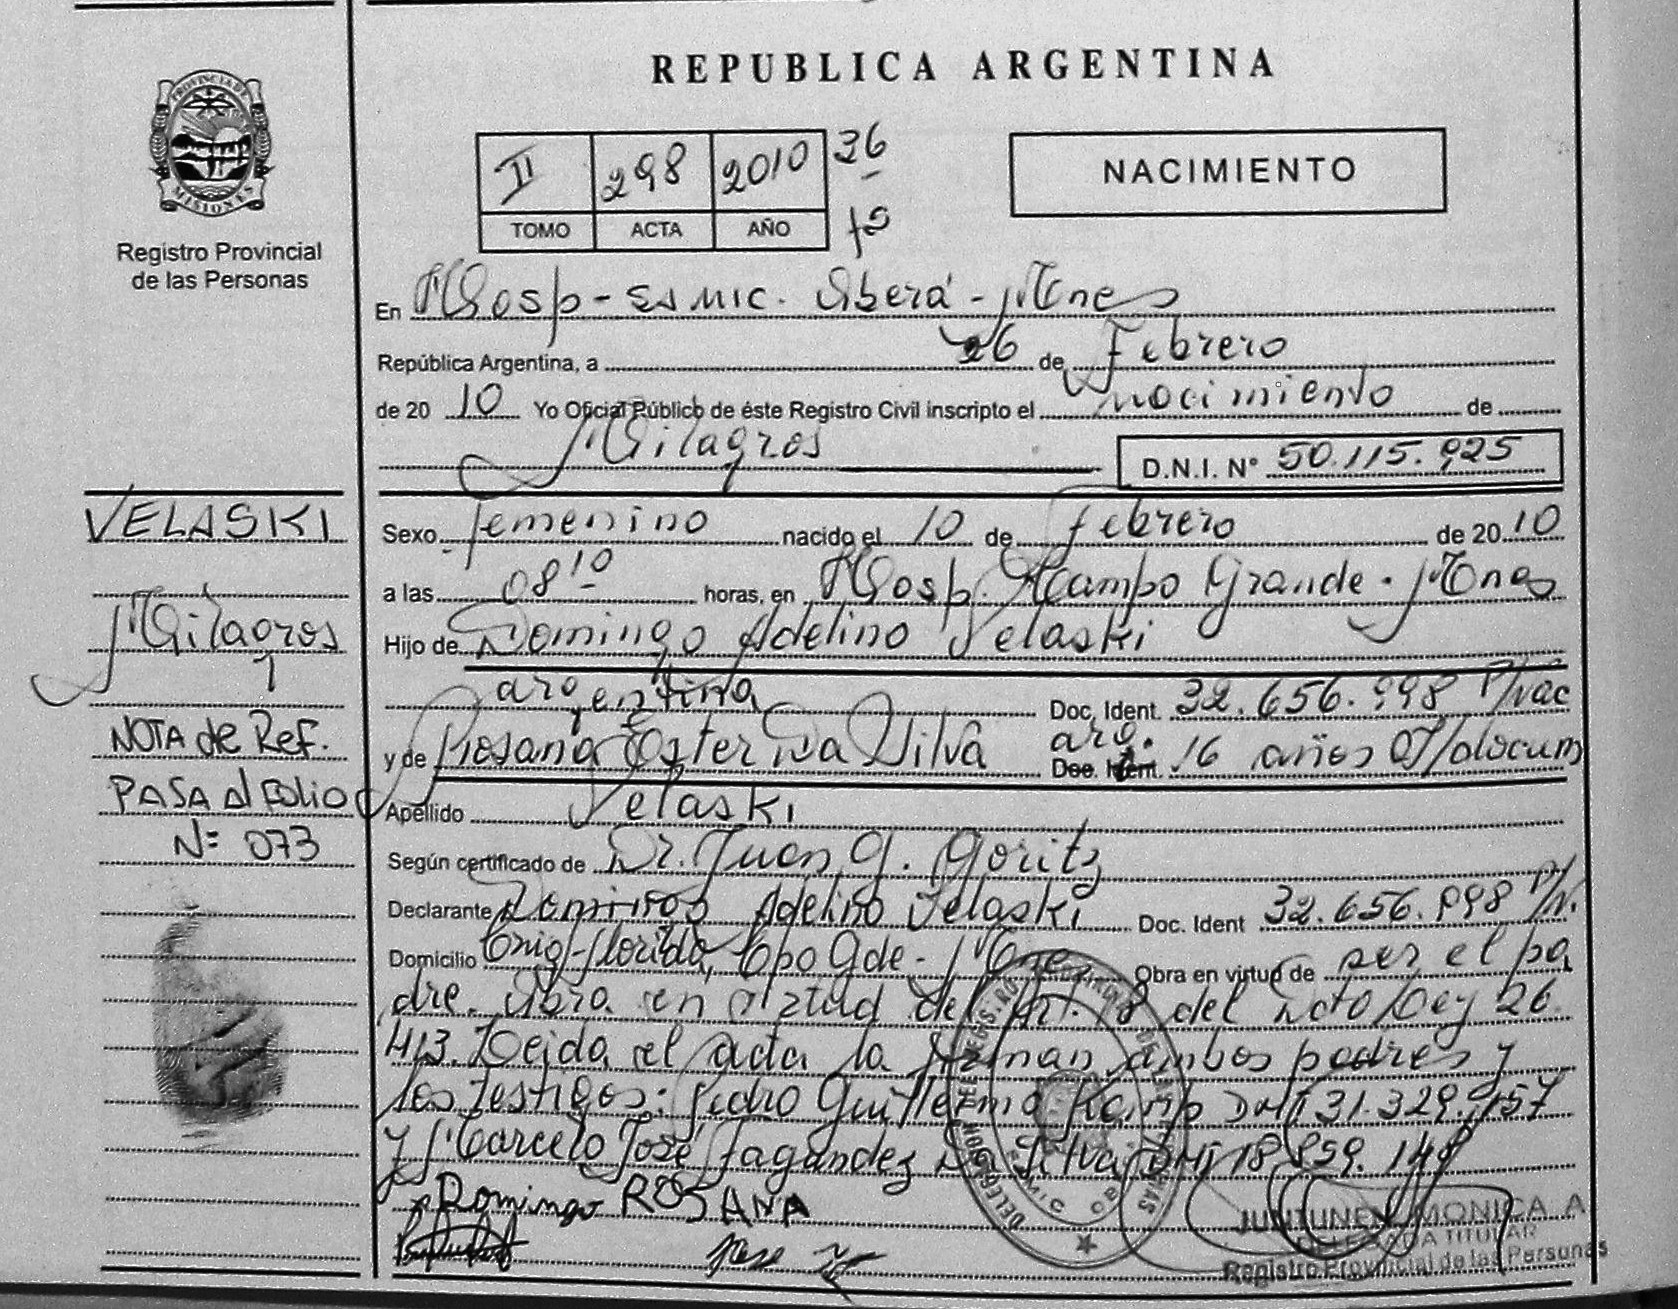 REPUBLICA ARGENTINA
PROVINCIA DE
MISIONES
Registro Provincial
de las Personas
II 298 2010 36
TOMO ACTA AÑO fº
NACIMIENTO
En Hosp - Oberá - Mnes
República Argentina, a 26 de Febrero
de 20 10 Yo Oficial Público de éste Registro Civil inscripto el nacimiento de
Milagros
D.N.I. Nº 50.115.925
VELASKI
Milagros
NOTA de Ref.
PASA al Folio
Nº 073
Sexo femenino nacido el 10 de febrero de 20 10
a las 08 10 horas, en Hosp. Campo Grande - Mnes
Hijo de Domingo Adelino Velaski
argentina Doc. Ident. 32.656.998
y de Rosana Ester Da Silva arg. Doc. Ident. 16 años
Apellido Velaski
Según certificado de Dr. Juan G. Goritz
Declarante Domingo Adelino Velaski Doc. Ident 32.656.998
Domicilio Florida, Cpo Gde - Mnes Obra en virtud de ser el pa
dre. Obra en virtud del Art. 18 del Dcto/Ley 26.
413. Leida el acta la firman ambos padres y
los testigos: Pedro Guillermo DNI 31.329.157
y Marcelo José Fagundez Da Silva DNI 18.859.149
Domingo ROSANA
Jose
MONICA A
DELEGADA TITULAR
Registro Provincial de las Personas